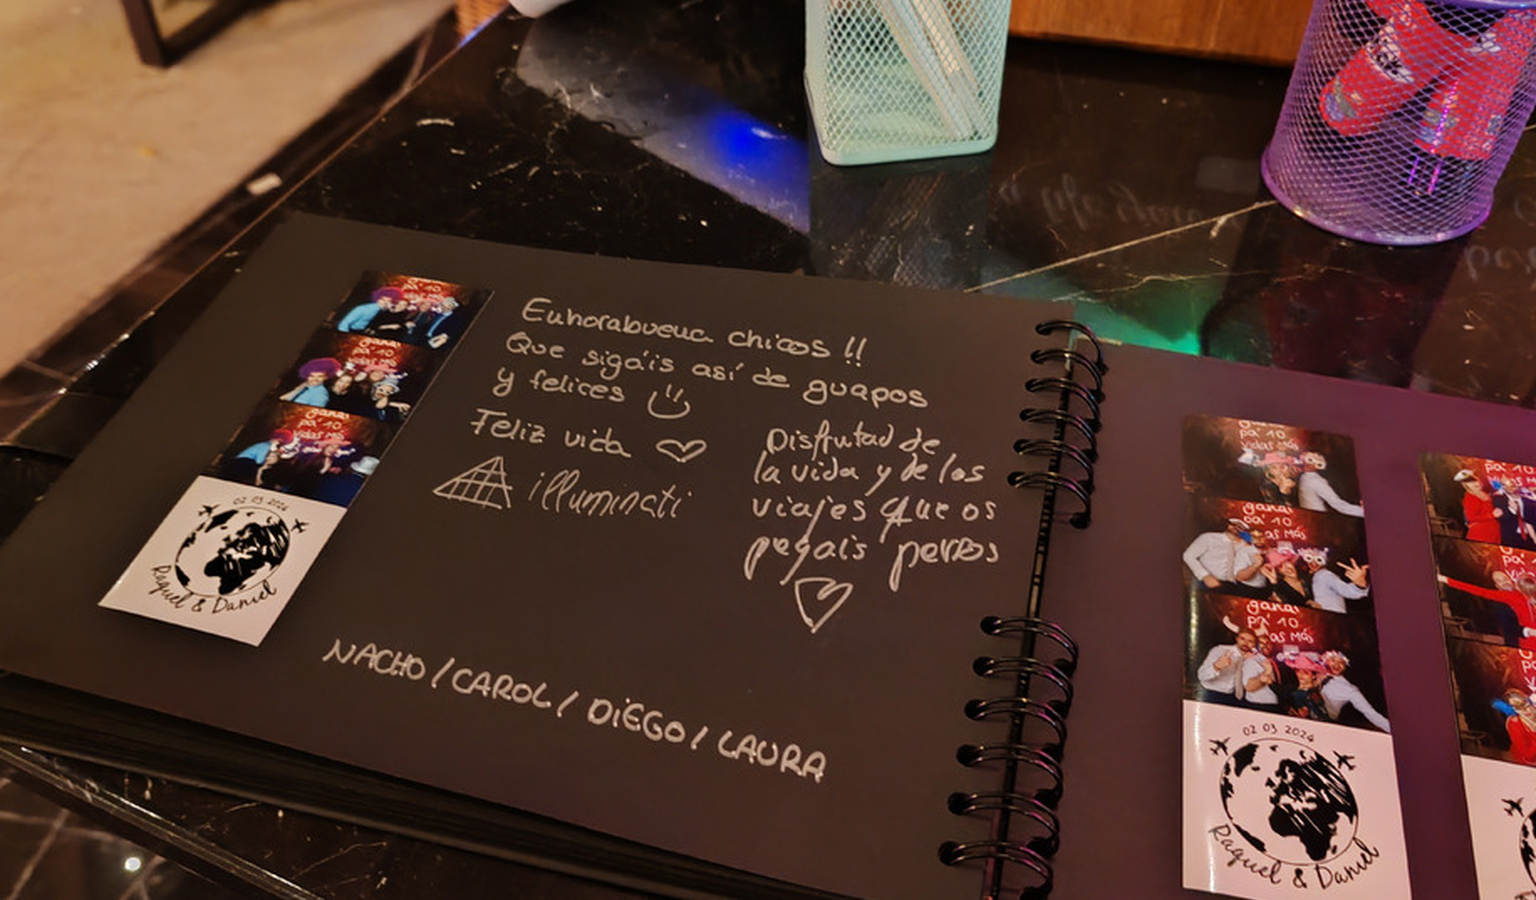 pa' 10
ganas
pa' 10
vidas más
ganas
pa' 10
vidas más
02 03 2024
Raquel & Daniel
Enhorabuena chicos !!
Que sigáis así de guapos
y felices
Feliz vida
illuminati
Disfrutad de
la vida y de los
viajes que os
pegais perros
NACHO / CAROL / DiEGO / LAURA
ganas
pa' 10
vidas más
ganas
pa' 10
as más
ganas
pa' 10
as más
02 03 2024
Raquel & Daniel
pa' 10
a life you